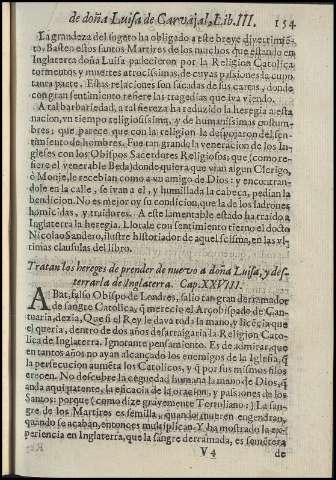 de doña Luisa de Carvajal, Lib. III. 154
La grandeza del sugeto ha obligado a este breve divertimiẽ-
to. Basten estos santos Martires de los muchos que estando en
Inglaterra doña Luisa padecieron por la Religion Catolica
tormentos y muertes atrocissimas, de cuyas passiones la cupo
tanta parte. Estas relaciones son sacadas de sus cartas, donde
con gran sentimiento refiere las tragedias que iva viendo.
A tal barbariedad, a tal fiereza ha reducido la heregia a esta
nacion, un tiempo religiosissima, y de humanissimas costum-
bres; que parece que con la religion la despojaron del sen-
timiento de hombres. Fue tan grande la veneracion de los In-
gleses con los Obispos Sacerdotes Religiosos, que (como re-
fiere el venerable Beda) donde quiera que vian algun Clerigo,
ò Monje, le recebian como a un amigo de Dios, y encontran-
dole en la calle, se ivan a el, y humillada la cabeça, pedian la
bendicion. No es mejor oy su condicion, que la de los ladrones
homicidas, y traidores. A este lamentable estado ha traido a
Inglaterra la heregia. Llorale con sentimiento tierno el docto
Nicolao Sandero, ilustre historiador de aquel scisma, en las ul-
timas clausulas del libro.
Tratan los hereges de prender de nuevo a doña Luisa, y des-
terrarla de Inglaterra. Cap. XXVIII.
ABat, falso Obispo de Londres, salio tan gran derramador
de sangre Catolica, q̃ merecio el Arçobispado de Can-
tuaria, dezia, Que si el Rey le dava toda la mano, y licẽcia que
el queria, dentro de dos años desarraigaria la Religion Cato-
lica de Inglaterra. Ignorante pensamiento. Es de admirar, que
en tantos años no ayan alcançado los enemigos de la Iglesia, q̃
la persecucion aumẽta los Catolicos, y q̃ por sus mismos filos
crecen. No descubre la ceguedad humana la mano de Dios, q̃
anda aqui patente, la eficacia de la oracion, y passiones de los
Santos: porque (como dize gravemente Tertuliano) La san-
gre de los Martires es semilla, quando mueren engendran,
quando se acaban, entonces multiplican. Y ha mostrado la ex-
periencia en Inglaterra, que la sangre derramada, es sementera
V 4 de